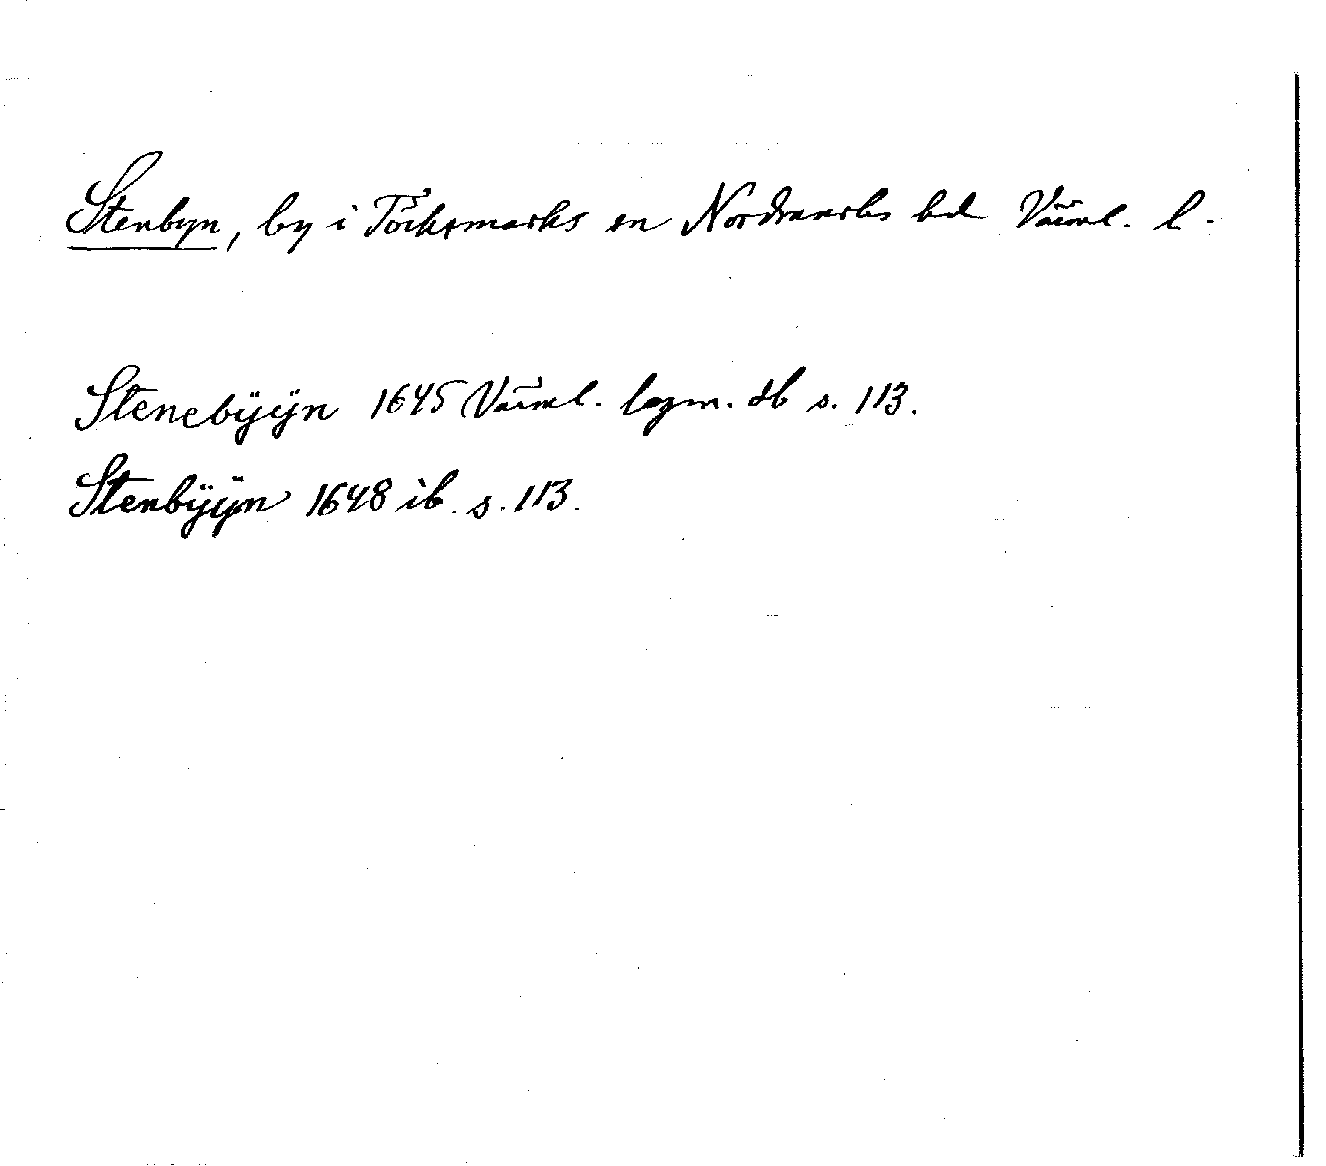 Stenbyn, by i Töcksmarks sn Nordmarks hd Värml. l.
Stenebÿÿn 1645 Värml. lagm. db s. 113.
Stenbÿÿn 1648 ib. s. 113.